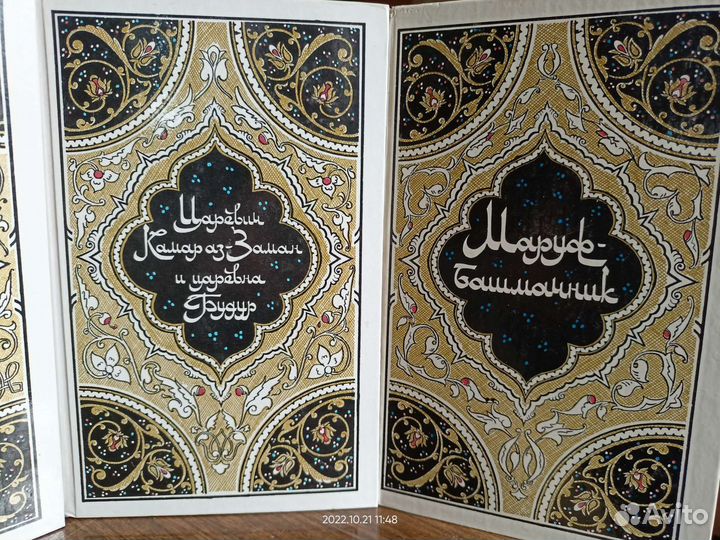 Царевич
Камар аз-Заман
и царевна
Будур
Маруф-
башмачник
2022.10.21 11:48
Avito